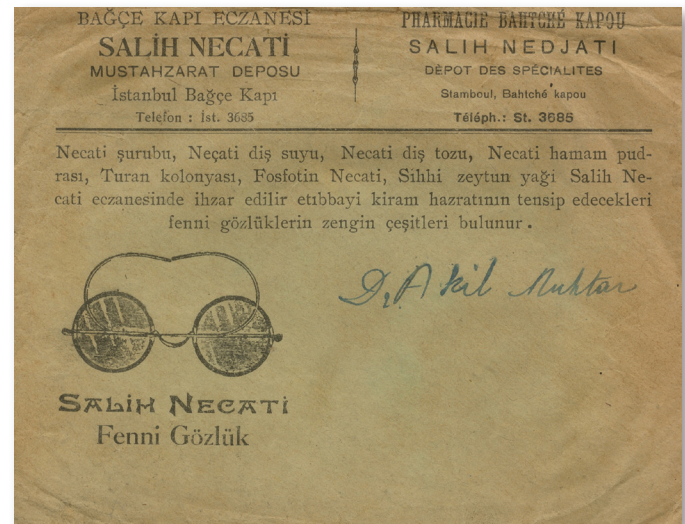 BAĞÇE KAPI ECZANESİ
SALİH NECATİ
MUSTAHZARAT DEPOSU
İstanbul Bağçe Kapı
Telefon : İst. 3685
PHARMACIE BAHTCHÉ KAPOU
SALIH NEDJATI
DÈPOT DES SPÈCIALITES
Stamboul, Bahtché kapou
Téléph.: St. 3685
Necati şurubu, Neçati diş suyu, Necati diş tozu, Necati hamam pud-
rası, Turan kolonyası, Fosfotin Necati, Sihhi zeytun yaği Salih Ne-
cati eczanesinde ihzar edilir etıbbayi kiram hazratının tensip edecekleri
fenni gözlüklerin zengin çeşitleri bulunur.
Dr. Akil Muhtar
SALİH NECATİ
Fenni Gözlük